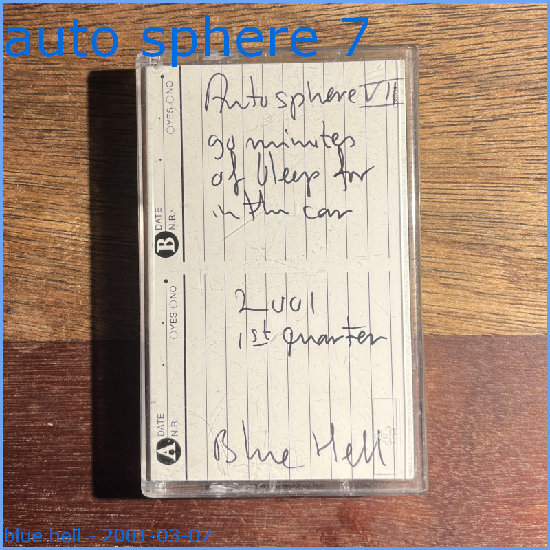 auto sphere 7
Autosphere VII
90 minutes
of bleep for
in the car
2001
1st quarter
Blue Hell
B DATE N.R. YES NO
A DATE N.R. YES NO
blue hell - 2001-03-07